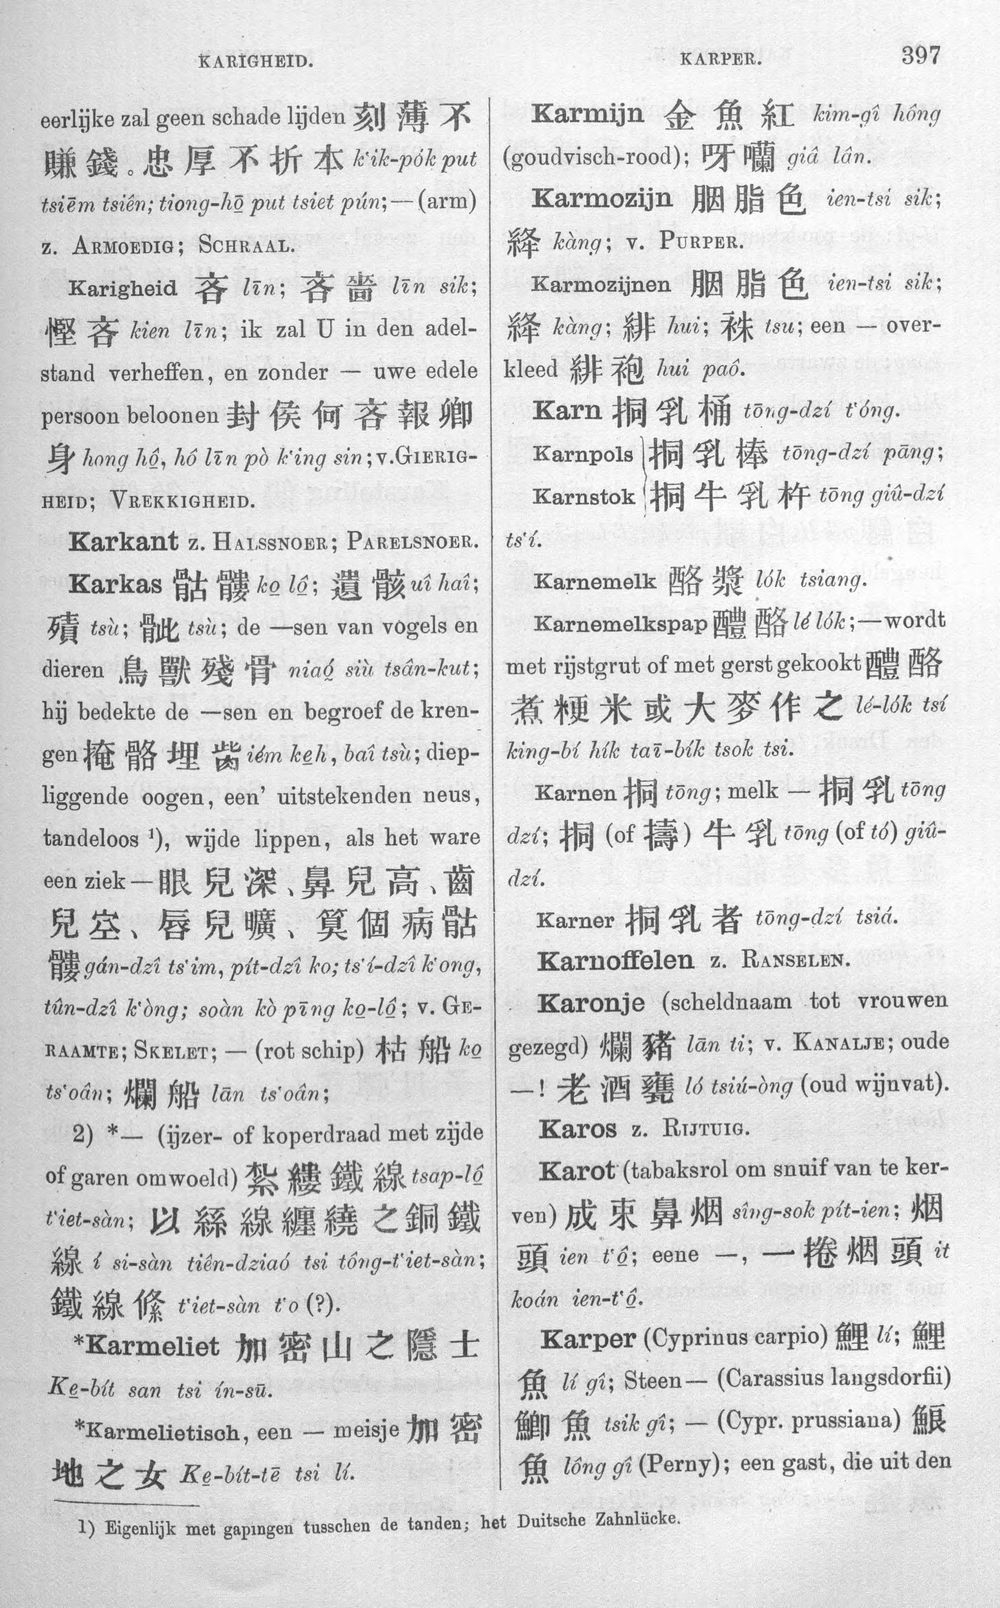 KARIGHEID.
KARPER.
397
eerlijke zal geen schade lijden 刻薄不
賺錢。忠厚不折本 k'ik-pók put
tsiēm tsiên; tiong-hō put tsiet pún;—(arm)
z. ARMOEDIG; SCHRAAL.
Karigheid 吝 līn; 吝嗇 līn sik;
慳吝 kien līn; ik zal U in den adel-
stand verheffen, en zonder — uwe edele
persoon beloonen 封侯何吝報卿
身 hong hô, hô līn pò k'ing sin; v. GIERIG-
HEID; VREKKIGHEID.
Karkant z. HALSSNOER; PARELSNOER.
Karkas 骷髏 ko lô; 遺骸 uî haî;
殰 tsù; 骴 tsù; de —sen van vogels en
dieren 鳥獸殘骨 niaó siù tsân-kut;
hij bedekte de —sen en begroef de kren-
gen 掩骼埋胔 iém keh, baî tsù; diep-
liggende oogen, een' uitstekenden neus,
tandeloos ¹), wijde lippen, als het ware
een ziek—眼兒深、鼻兒高、齒
兒空、唇兒曠、算個病骷
髏 gán-dzî ts'im, pít-dzî ko; ts'í-dzî k'ong,
tûn-dzî k'òng; soàn kò pīng ko-lô; v. GE-
RAAMTE; SKELET; — (rot schip) 枯船 ko
ts'oân; 爛船 lān ts'oân;
2) *— (ijzer- of koperdraad met zijde
of garen omwoeld) 紮縷鐵線 tsap-lô
t'iet-sàn; 以絲線纏繞之銅鐵
線 í si-sàn tiên-dziaó tsi tông-t'iet-sàn;
鐵線絛 t'iet-sàn t'o (?).
*Karmeliet 加密山之隱士
Ke-bít san tsi ín-sū.
*Karmelietisch, een — meisje 加密
地之女 Ke-bít-tē tsi lí.
1) Eigenlijk met gapingen tusschen de tanden; het Duitsche Zahnlücke.
Karmijn 金魚紅 kim-gî hông
(goudvisch-rood); 呀囒 giâ lân.
Karmozijn 胭脂色 ien-tsi sik;
絳 kàng; v. PURPER.
Karmozijnen 胭脂色 ien-tsi sik;
絳 kàng; 緋 hui; 袾 tsu; een — over-
kleed 緋袍 hui paô.
Karn 挏乳桶 tōng-dzí t'óng.
Karnpols 挏乳棒 tōng-dzí pāng;
Karnstok 挏牛乳杵 tōng giû-dzí
ts'í.
Karnemelk 酪漿 lók tsiang.
Karnemelkspap 醴酪 lé lók;—wordt
met rijstgrut of met gerst gekookt 醴酪
煮粳米或大麥作之 lé-lók tsí
king-bí hík taī-bík tsok tsi.
Karnen 挏 tōng; melk — 挏乳 tōng
dzí; 挏 (of 擣) 牛乳 tōng (of tó) giû-
dzí.
Karner 挏乳者 tōng-dzí tsiá.
Karnoffelen z. RANSELEN.
Karonje (scheldnaam tot vrouwen
gezegd) 爛豬 lān ti; v. KANALJE; oude
—! 老酒甕 ló tsiú-òng (oud wijnvat).
Karos z. RIJTUIG.
Karot (tabaksrol om snuif van te ker-
ven) 成束鼻烟 sîng-sok pít-ien; 烟
頭 ien t'ô; eene —, 一捲烟頭 it
koán ien-t'ô.
Karper (Cyprinus carpio) 鯉 lí; 鯉
魚 lí gî; Steen— (Carassius langsdorfii)
鯽魚 tsik gî; — (Cypr. prussiana) 鮸
魚 lông gî (Perny); een gast, die uit den